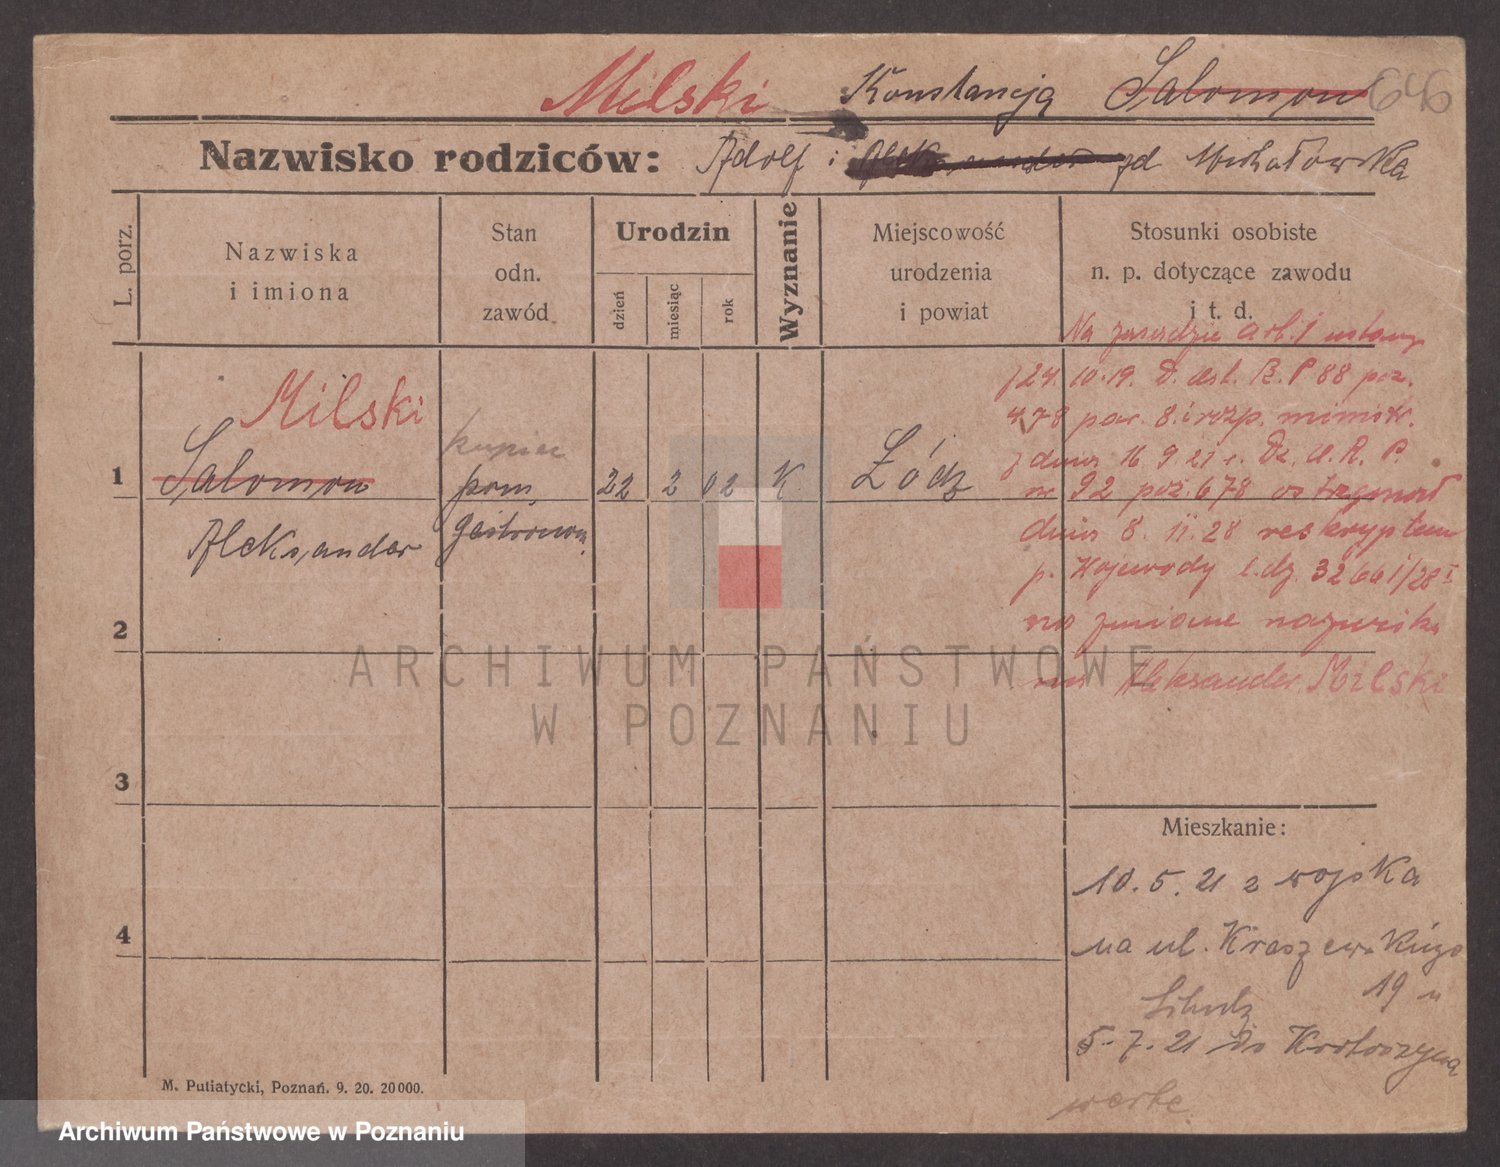 Milski Konstancją Salomon 646
Nazwisko rodziców: Adolf i zd Michałowska
L. porz.
Nazwiska
i imiona
Stan
odn.
zawód
Urodzin
dzień
miesiąc
rok
Wyznanie
Miejscowość
urodzenia
i powiat
Stosunki osobiste
n. p. dotyczące zawodu
i t. d.
Na zasadzie art. 1 ustawy
z 24. 10. 19. D. ust. R. P 88 poz.
478 par. 8. i rozp. ministr.
z dnia 16 9. 21 r. Dz. U. R. P
nr 92 poz. 678 otrzymał
dnia 8. 11. 28 reskryptem
p. Wojewody l. dz. 3266 i/28 I
na zmianę nazwiska
na Aleksander Milski
1
Milski
Salomon
Aleksander
kupiec
pom.
gastronom.
22 2 02 K. Łódz
2
3
4
Mieszkanie:
10. 5. 21 z wojska
na ul. Kraszewskiego
19 u
5. 7. 21 do Krotoszyna
M. Putiatycki, Poznań. 9. 20. 20000.
ARCHIWUM PAŃSTWOWE
W POZNANIU
Archiwum Państwowe w Poznaniu